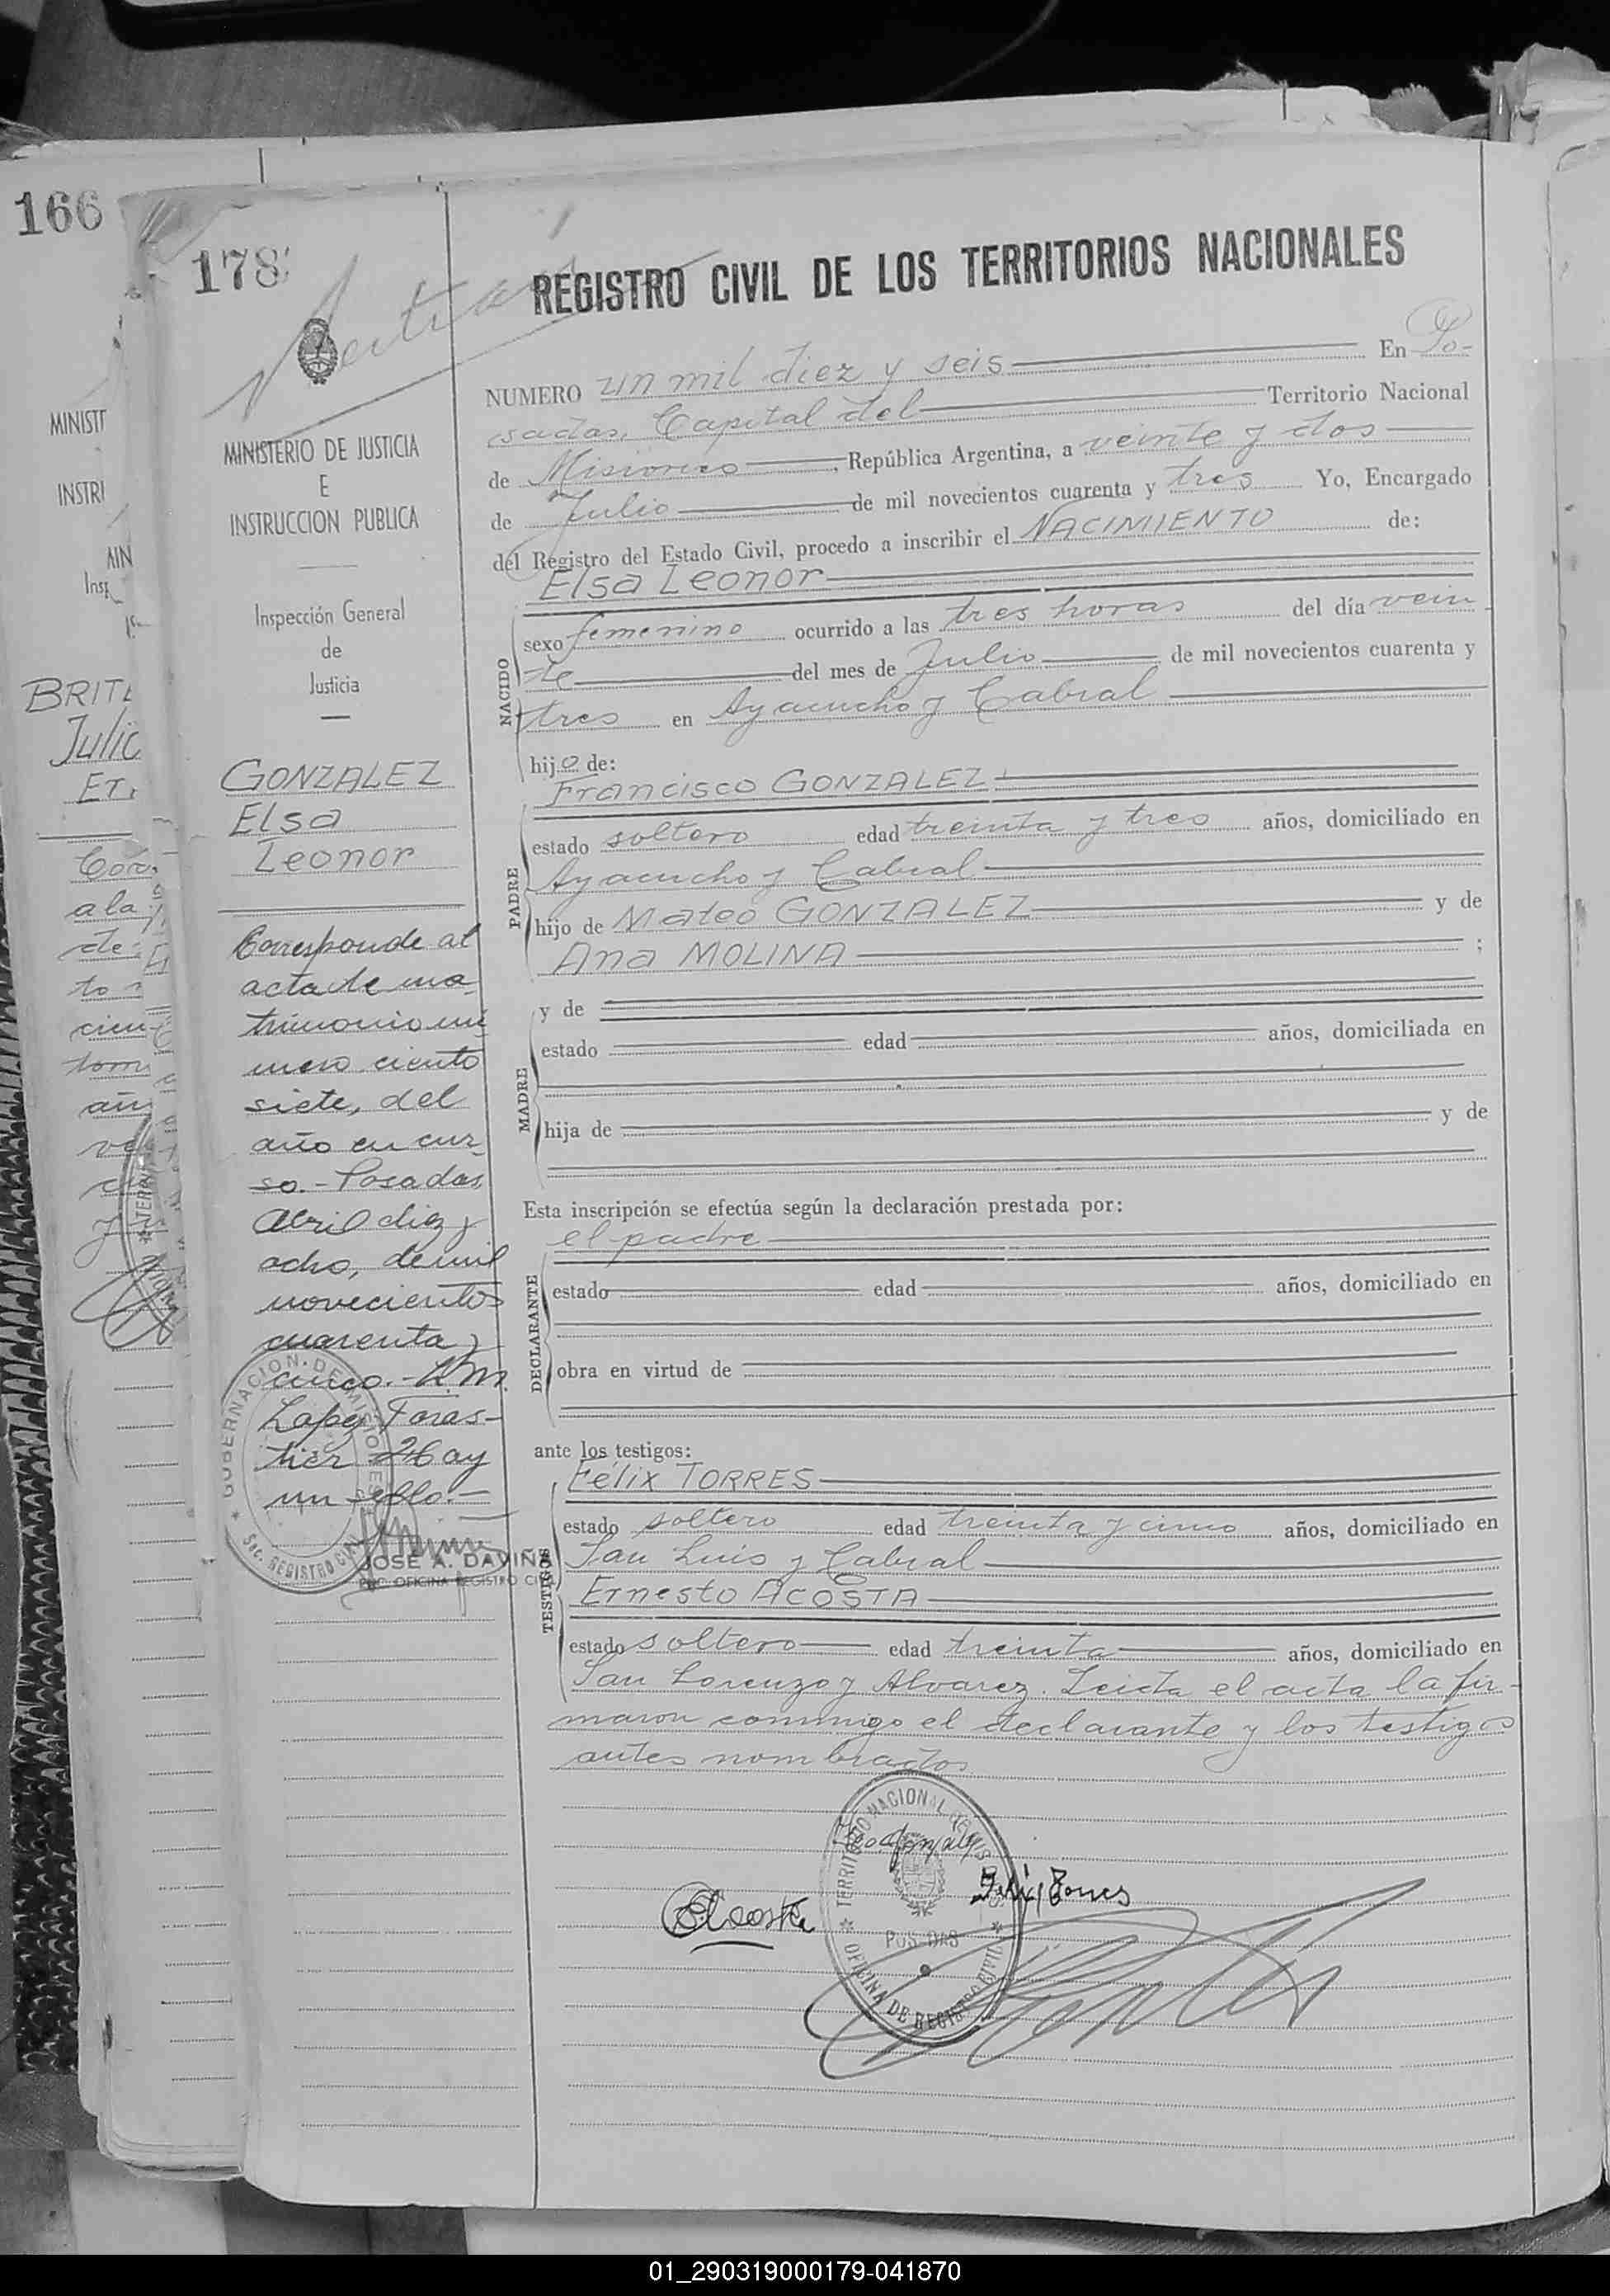 166
MINISTE
INSTRU
BRITE
Julio
178
REGISTRO CIVIL DE LOS TERRITORIOS NACIONALES
MINISTERIO DE JUSTICIA
E
INSTRUCCION PUBLICA
Inspección General
de
Justicia
GONZALEZ
Elsa
Leonor
Corresponde al
acta de ma
trimonio nú
mero ciento
siete, del
año en cur
so.- Posadas,
Abril diez y
ocho, de mil
novecientos
cuarenta y
cinco.-
Lopez Foras-
tier Hay
un sello.-
GOBERNACION DE MISIONES
Sec. REGISTRO CIVIL
JOSÉ A. DAVIÑA
OFICINA REGISTRO CIVIL
NUMERO un mil diez y seis En Po-
sadas, Capital del Territorio Nacional
de Misiones, República Argentina, a veinte y dos
de Julio de mil novecientos cuarenta y tres Yo, Encargado
del Registro del Estado Civil, procedo a inscribir el NACIMIENTO de:
Elsa Leonor
NACIDO
sexo femenino ocurrido a las tres horas del día vein
te del mes de Julio de mil novecientos cuarenta y
tres en Ayacucho y Cabral
hijo de:
Francisco GONZALEZ
PADRE
estado soltero edad treinta y tres años, domiciliado en
Ayacucho y Cabral
hijo de Mateo GONZALEZ y de
Ana MOLINA ;
y de
MADRE
estado edad años, domiciliada en
hija de y de
Esta inscripción se efectúa según la declaración prestada por:
el padre
DECLARANTE
estado edad años, domiciliado en
obra en virtud de
ante los testigos:
Félix TORRES
TESTIGOS
estado soltero edad treinta y cinco años, domiciliado en
San Luis y Cabral
Ernesto ACOSTA
estado soltero edad treinta años, domiciliado en
San Lorenzo y Alvarez. Leída el acta la fir-
maron conmigo el declarante y los testigos
antes nombrados
TERRITORIO NACIONAL DE MISIONES
POSADAS
OFICINA DE REGISTRO CIVIL
Fco Gonzalez
EAcosta
Felix Torres
01_290319000179-041870